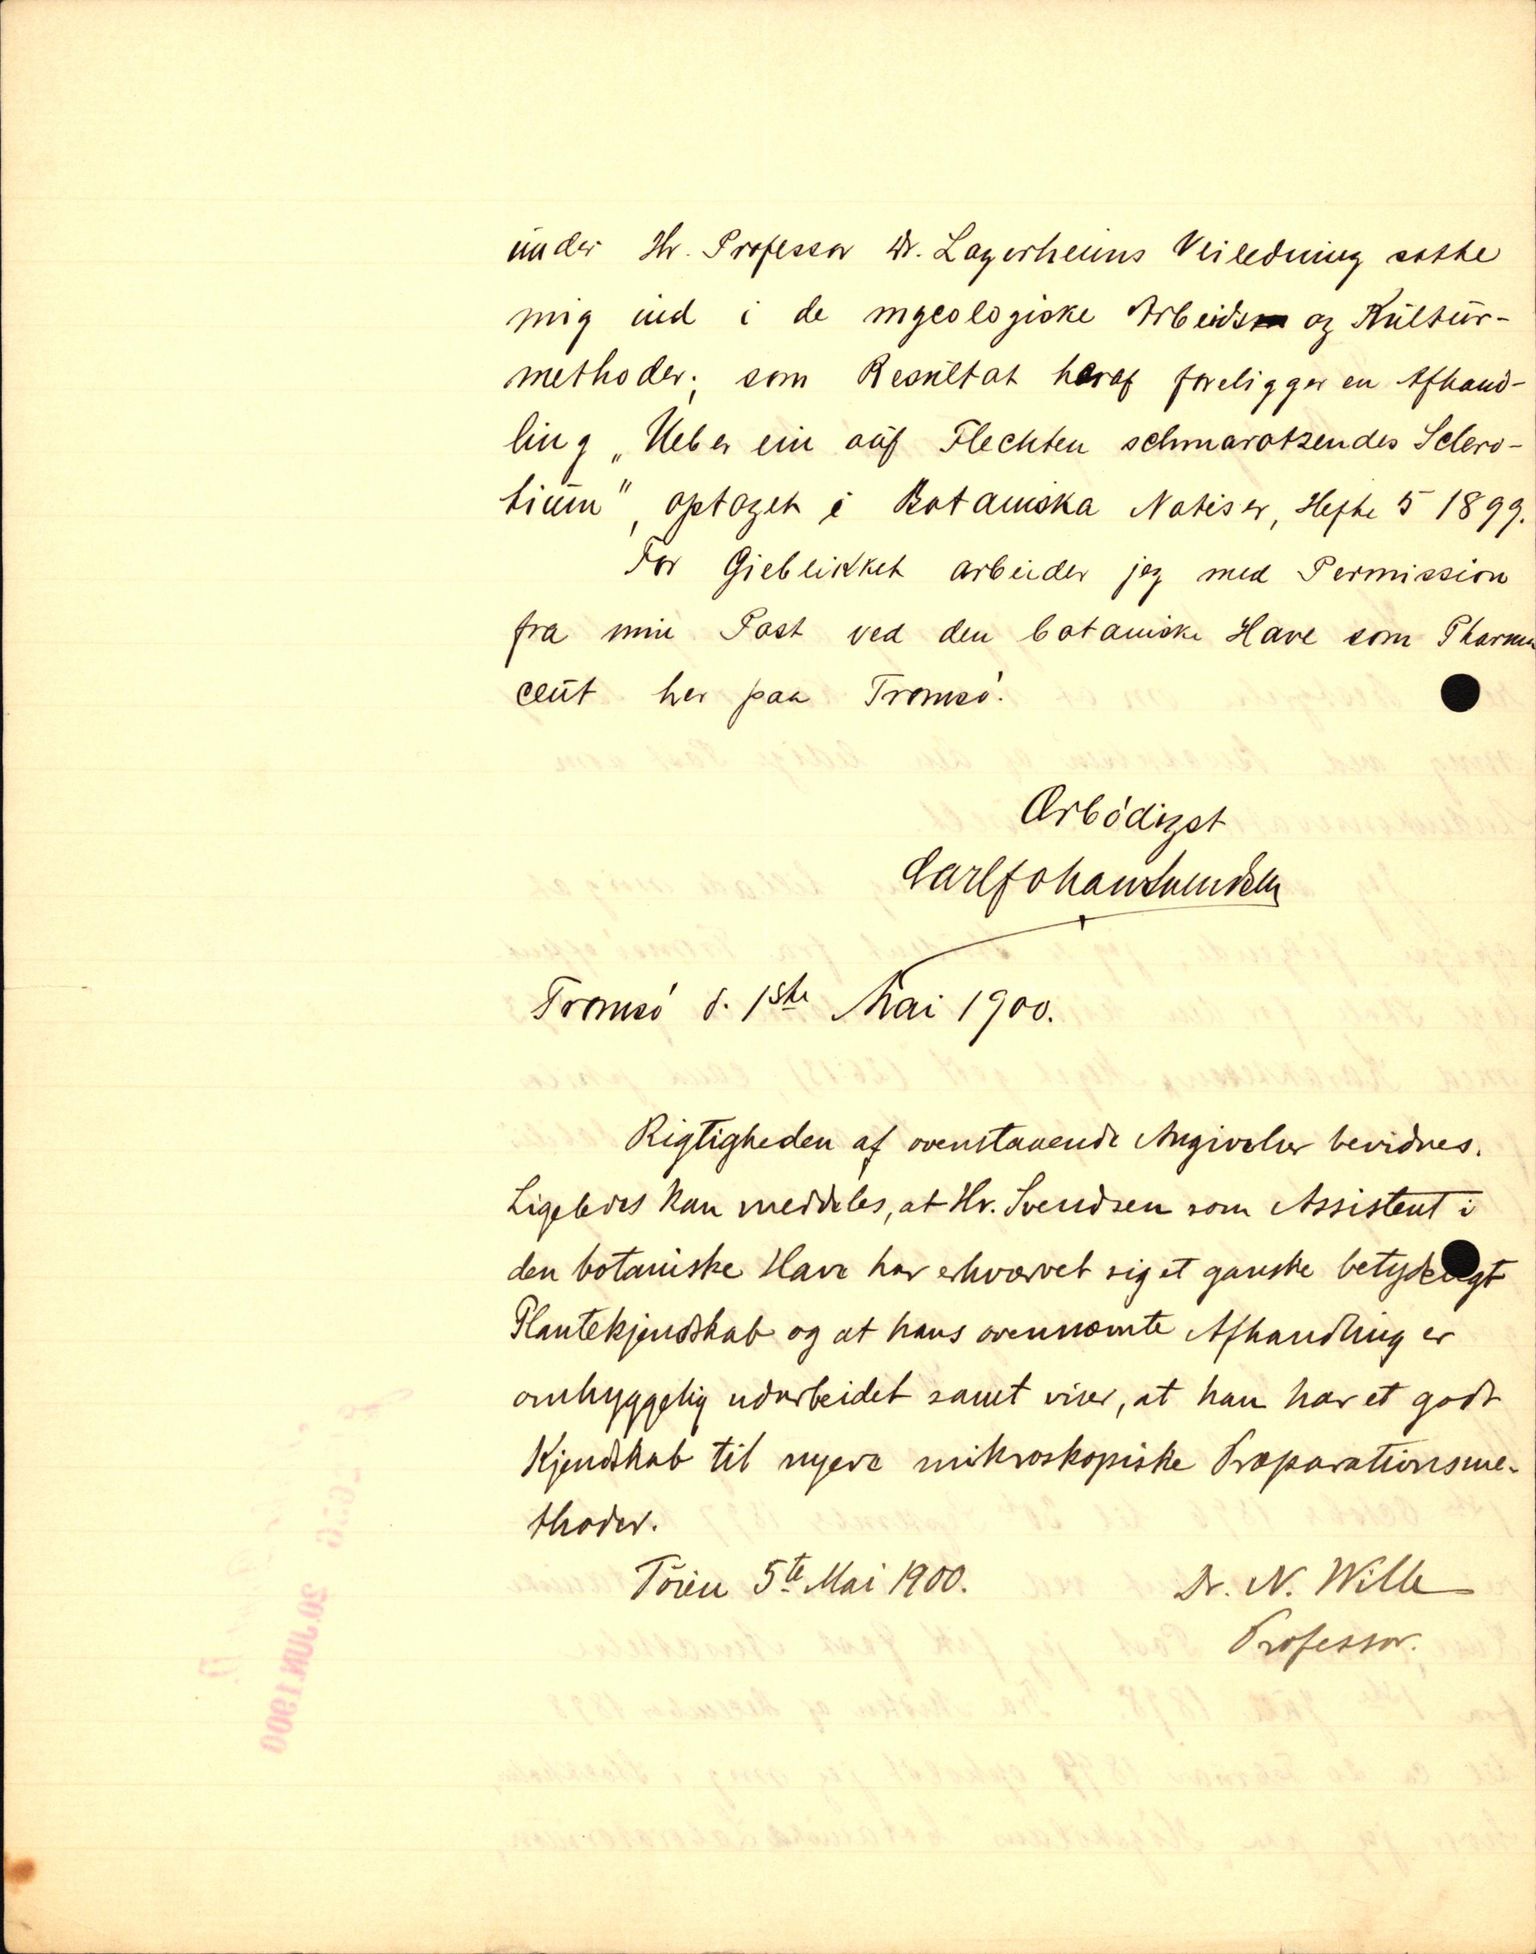 under Hr. Professor Dr. Lagerheims Veiledning satte
mig ind i de mycologiske Arbeids og Kultur-
methoder; som Resultat heraf foreligger en Afhand-
ling „Ueber ein auf Flechten schmarotzendes Sclero-
tium", optaget i Botaniska Notiser, Hefte 5 1899.
For Øieblikket arbeider jeg med Permission
fra min Post ved den botaniske Have som Pharma
ceut her paa Tromsó.
Ærbódigst
Carl Johan Svendsen
Tromsó d. 1ste Mai 1900.
Rigtigheden af ovenstaaende Angivelser bevidnes.
Ligeledes kan meddeles, at Hr. Svendsen som Assistent i
den botaniske Have har erhvervet sig et ganske betydeligt
Plantekjendskab og at hans ovennævnte Afhandling er
omhyggelig udarbeidet samt viser, at han har et godt
Kjendskab til nyere mikroskopiske Præparationsme-
thoder.
Tóien 5te Mai 1900.
Dr. N. Wille
Professor.
20.JUN.1900